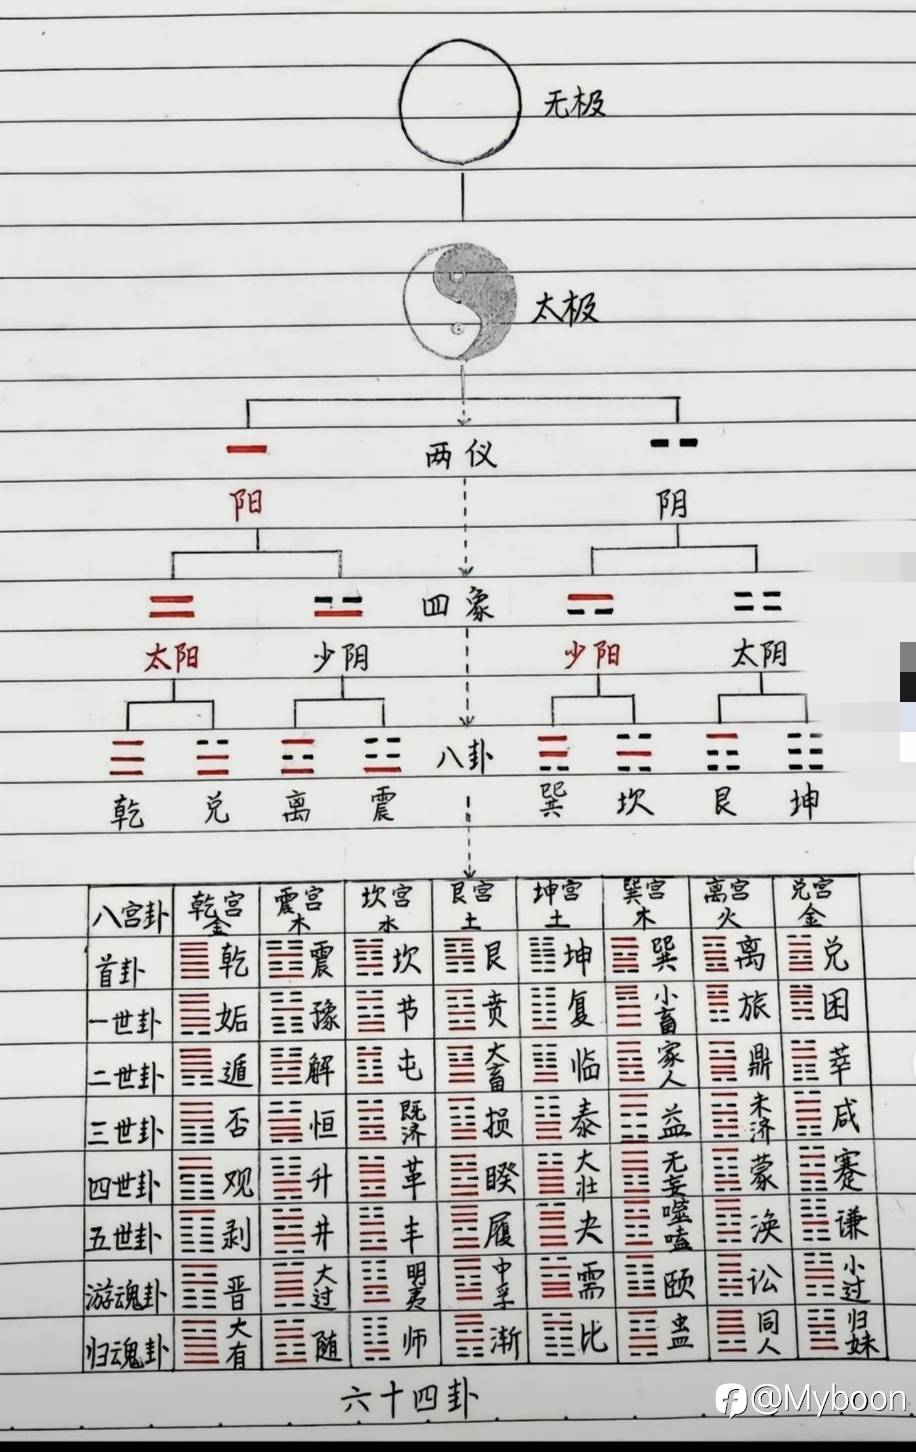 无极
太极
两仪
阳 阴
四象
太阳 少阴 少阳 太阴
八卦
乾 兑 离 震 巽 坎 艮 坤
八宫卦 乾宫金 震宫木 坎宫水 艮宫土 坤宫土 巽宫木 离宫火 兑宫金
首卦 乾 震 坎 艮 坤 巽 离 兑
一世卦 姤 豫 节 贲 复 小畜 旅 困
二世卦 遁 解 屯 大畜 临 家人 鼎 萃
三世卦 否 恒 既济 损 泰 益 未济 咸
四世卦 观 升 革 睽 大壮 无妄 蒙 蹇
五世卦 剥 井 丰 履 夬 噬嗑 涣 谦
游魂卦 晋 大过 明夷 中孚 需 颐 讼 小过
归魂卦 大有 随 师 渐 比 蛊 同人 归妹
六十四卦
@Myboon